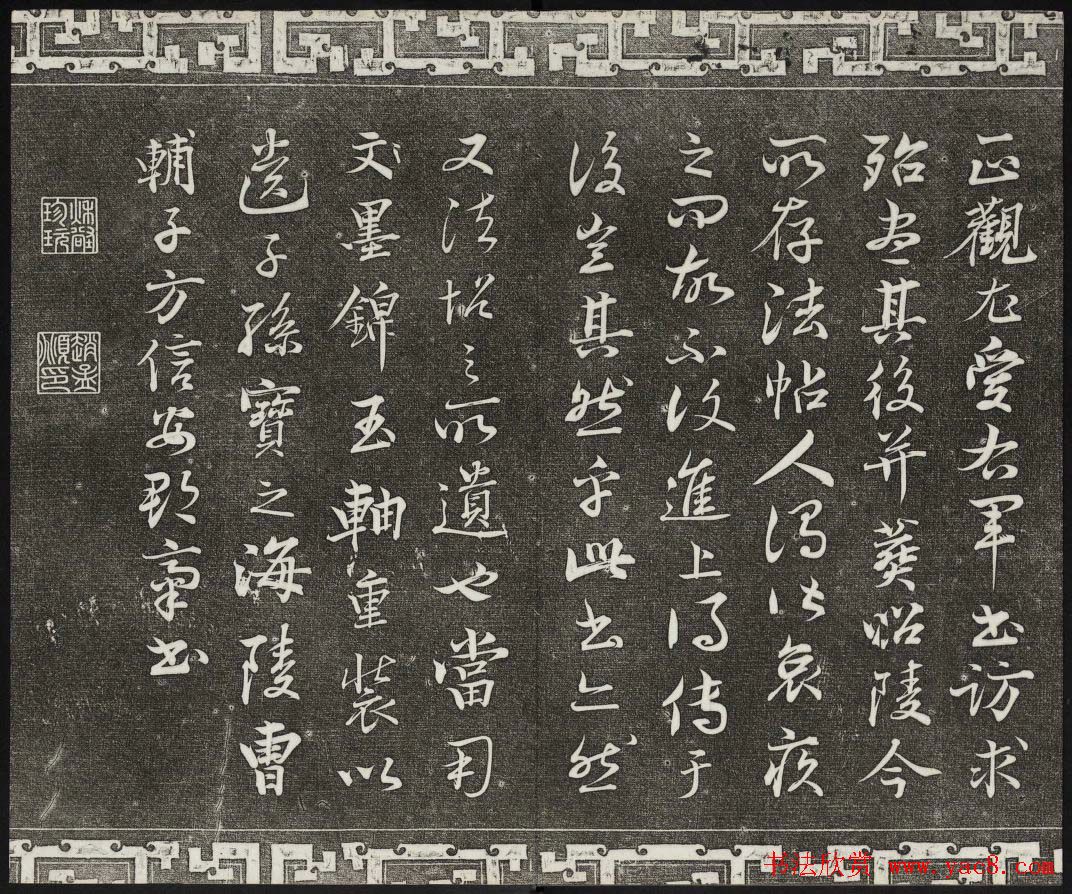 正觀尤愛右軍書訪求
殆盡其後并葬昭陵今
所存法帖人得皆哀疾
之問故不以進上得傳于
後豈其然乎此書亦然
又法塔之所遺也當用
文墨錦玉軸重裝以
遺子孫寶之海陵曹
輔子方信安郡齋書
珍玩
趙孟
印
书法欣赏 www.yac8.com